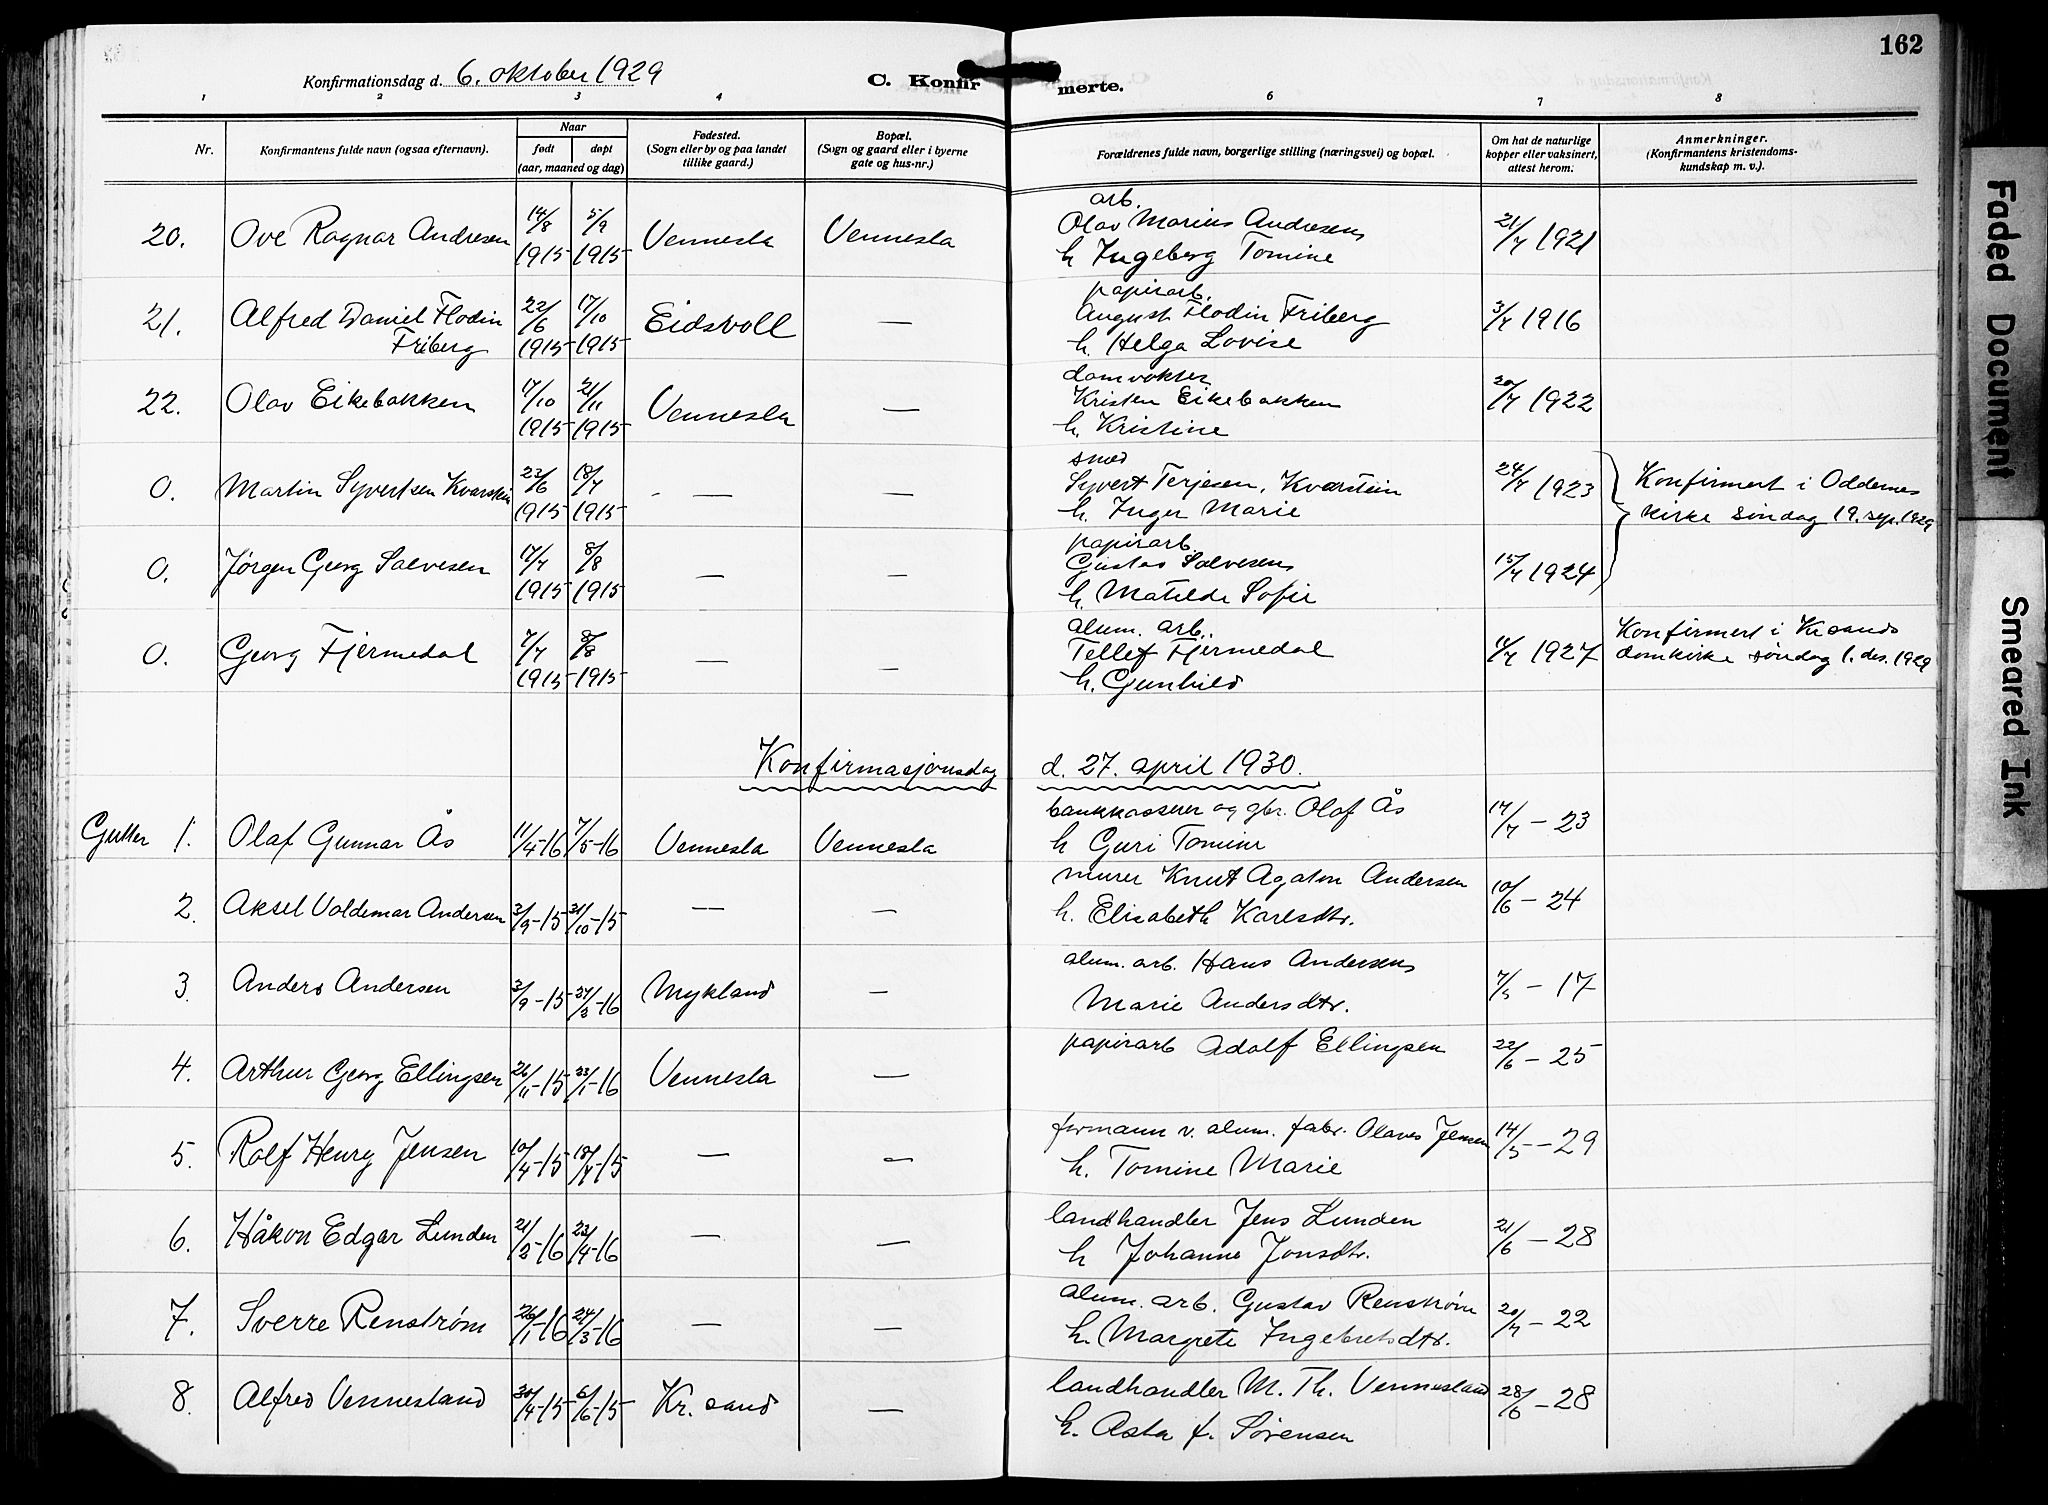 162
Konfirmationsdag d. 6. oktober 1929
C. Konfirmerte.
1 2 3 4 6 7 8
Nr.
Konfirmantens fulde navn (ogsaa efternavn).
Naar
født døpt
(aar, maaned og dag)
Fødested.
(Sogn eller by og paa landet
tillike gaard.)
Bopæl.
(Sogn og gaard eller i byerne
gate og hus-nr.)
Forældrenes fulde navn, borgerlige stilling (næringsvei) og bopæl.
Om hat de naturlige
kopper eller vaksinert,
attest herom.
Anmerkninger.
(Konfirmantens kristendoms-
kundskap m. v.).
arb.
20. Ove Ragnar Andresen 14/8 1915 5/9 1915 Vennesla Vennesla Olav Marius Andresen 21/7 1921
h Ingeberg Tomine
papirarb.
21. Alfred Daniel Flodin 22/6 1915 17/10 1915 Eidsvoll — August Flodin Friberg 3/7 1916
Friberg h. Helga Lovise
damvokter
22. Olav Eikebakken 17/10 1915 21/11 1915 Vennesla — Kristen Eikebakken 20/7 1922
h. Kristine
smed
0. Martin Syvertsen Kvarstein 23/6 1915 18/7 1915 — — Syvert Terjesen, Kvarstein 24/7 1923 Konfirmert i Oddernes
h. Inger Marie kirke søndag 19. sep. 1929
papirarb.
0. Jørgen Georg Salvesen 17/7 1915 8/8 1915 — — Gustav Salvesen 15/7 1924
h. Matilde Sofie
alum. arb.
0. Georg Fjermedal 7/7 1915 8/8 1915 — — Tellef Fjermedal 1927 Konfirmert i Kr.sands
h. Gunhild domkirke søndag 1. des. 1929
Konfirmasjonsdag d. 27. april 1930.
Gutter 1. Olaf Gunnar Ås 11/4-16 7/5-16 Vennesla Vennesla bankkasserer og gbr. Olaf Ås 17/7 – 23
h Guri Tomine
2. Aksel Valdemar Andersen 3/9-15 31/10-15 — — murer Knut Agaton Andersen 10/6 – 24
h. Elisabeth Karlsdtr.
3. Anders Andersen 3/9-15 -16 Mykland — alum. arb. Hans Andersen 7/5 – 17
Marie Andersdtr.
4. Arthur Georg Ellingsen 26/11-15 23/1-16 Vennesla — papirarb Adolf Ellingsen 22/6 – 25
5. Rolf Henry Jensen 10/4-15 18/7-15 — — formann v. alum. fabr. Olaves Jensen 14/5 – 29
h. Tomine Marie
6. Håkon Edgar Lunden 21/2-16 23/4-16 — — landhandler Jens Lunden 21/6 – 28
h Johanne Jonsdtr.
7. Sverre Renstrøm 26/1-16 24/3-16 — — alum. arb. Gustav Renstrøm 20/7 – 22
h. Margrete Ingebretsdtr.
8. Alfred Vennesland 30/4-15 6/6-15 Kr. sand — landhandler M. Th. Vennesland 28/6 – 28
h. Asta f. Sørensen
Faded Document
Smeared Ink